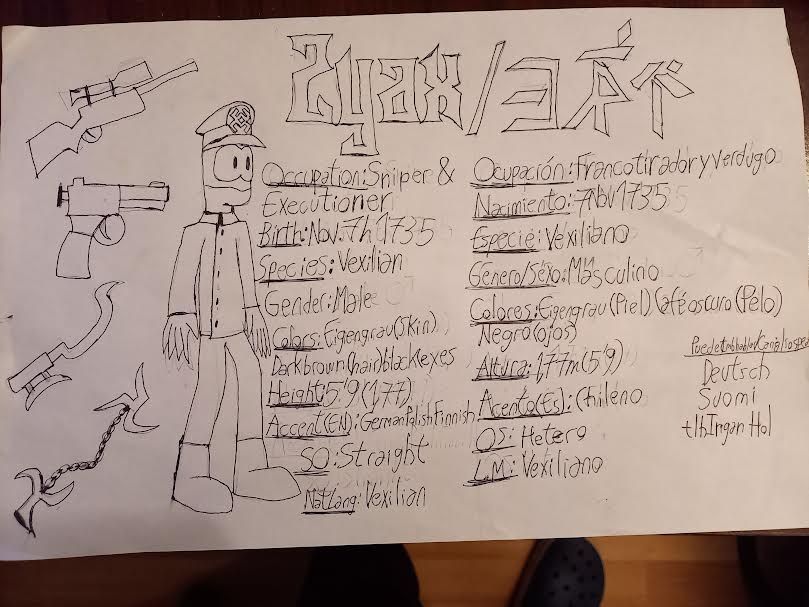 Zyax/
Occupation: Sniper &
Executioner
Birth: Nov. 7th 1735
Species: Vexilian
Gender: Male
Colors: Eigengrau (Skin)
Dark brown (hair) black eyes
Height: 5'9 (1,77)
Accent (EN): German Polish Finnish
SO: Straight
Nat Lang: Vexilian
Ocupación: Francotirador y verdugo
Nacimiento: 7 Nov 1735
Especie: Vexiliano
Género/Sexo: Masculino
Colores: Eigengrau (Piel) Café oscuro (Pelo)
Negro (ojos)
Altura: 1,77m (5'9)
Acento (Es): Chileno
OS: Hetero
LM: Vexiliano
Deutsch
Suomi
tlhIngan Hol